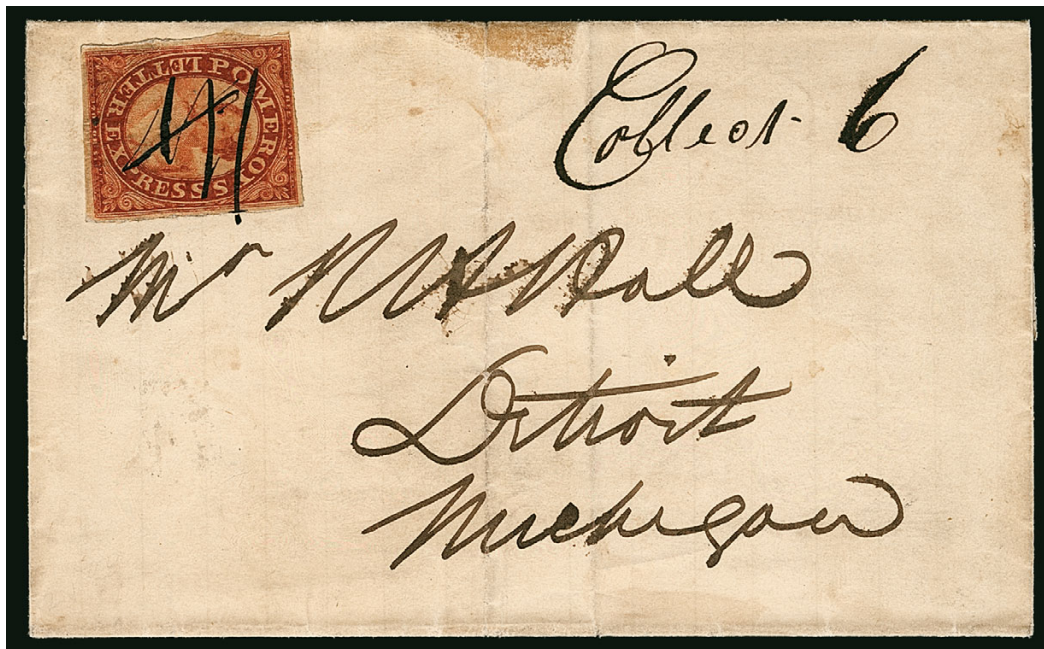 POMEROY'S LETTER EXPRESS
Collect 6
Mr
Hall
Detroit
Michigan